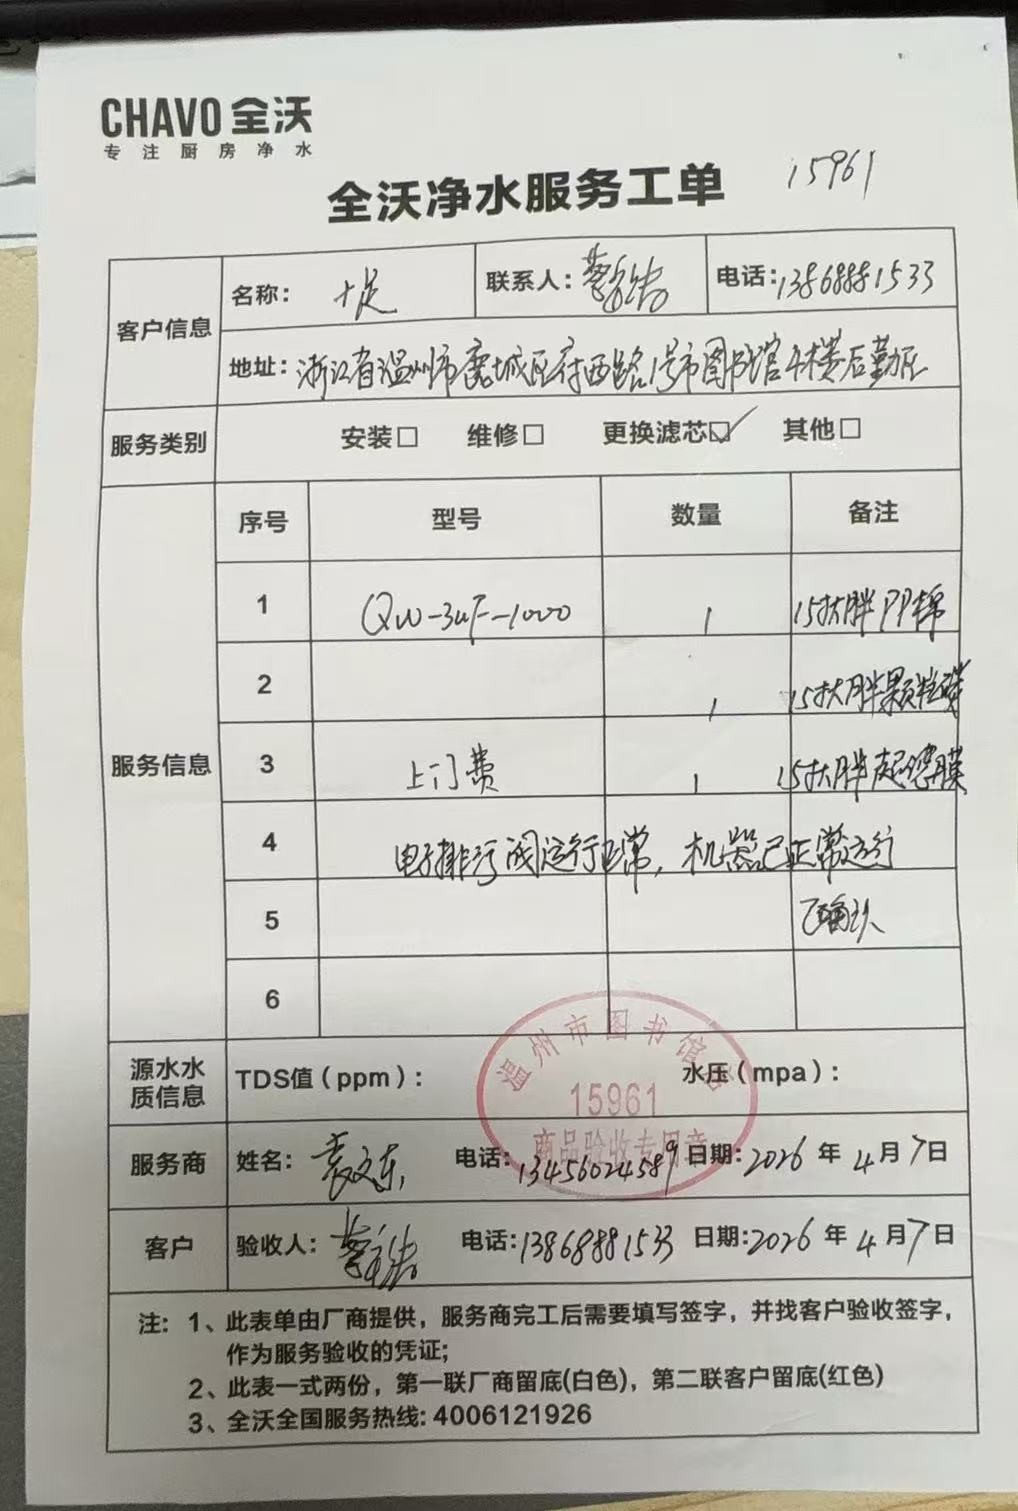 CHAVO 全沃
专注厨房净水
全沃净水服务工单 15961
客户信息
名称： 十足 联系人： 蔡 电话：13868881533
地址：浙江省温州市鹿城区府西路1号市图书馆4楼后勤区
服务类别 安装□ 维修□ 更换滤芯☑ 其他□
服务信息
序号 型号 数量 备注
1 QW-3UF-1000 1 15寸大胖PP棉
2 1 15寸大胖颗粒碳
3 上门费 1 15寸大胖超滤膜
4 电子排污阀运行正常，机器已正常运行
5 已确认
6
温州市图书馆
15961
商品验收专用章
源水水质信息 TDS值（ppm）： 水压（mpa）：
服务商 姓名：袁文东 电话：13456024589 日期：2026 年 4 月 7 日
客户 验收人：蔡 电话：13868881533 日期：2026 年 4 月 7 日
注：1、此表单由厂商提供，服务商完工后需要填写签字，并找客户验收签字，
作为服务验收的凭证;
2、此表一式两份，第一联厂商留底(白色)，第二联客户留底(红色)
3、全沃全国服务热线: 4006121926